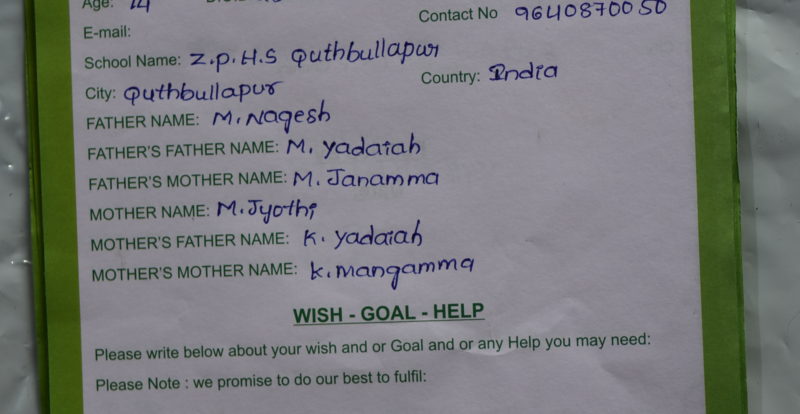 Age: 14
Contact No 9640870050
E-mail:
School Name: Z.P.H.S Quthbullapur
City: Quthbullapur Country: India
FATHER NAME: M. Nagesh
FATHER'S FATHER NAME: M. Yadaiah
FATHER'S MOTHER NAME: M. Janamma
MOTHER NAME: M. Jyothi
MOTHER'S FATHER NAME: K. Yadaiah
MOTHER'S MOTHER NAME: K. Mangamma
WISH - GOAL - HELP
Please write below about your wish and or Goal and or any Help you may need:
Please Note : we promise to do our best to fulfil: